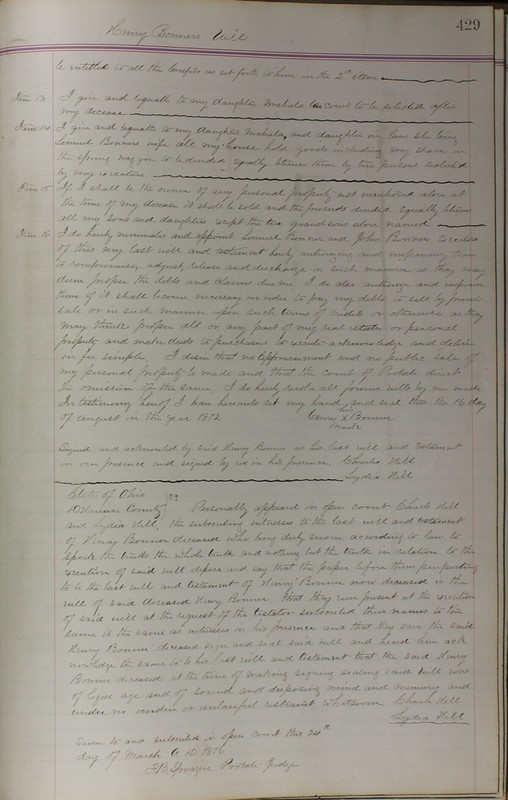 429
Henry Bonner Will
be entitled to all the benefits as set forth to him in the 2nd item
Item 13 I give and bequath to my daughter Mahala cow to be selected after
my decease
Item 14 I give and bequath to my daughter Mahala, and daughter in law she being
Lemuel Bonners wife all my house hold goods including my share in
the spring wagon to be divided equally between them by two persons selected
by my executors
Item 15 If I shall be the owner of any personal property not mentioned above at
the time of my decease it shall be sold and the proceeds divided equally between
all my sons and daughters except the two grandsons above named
Item 16 I do herby nominate and appoint Lemuel Bonner and John Bonner Executors
of this my last will and testament herby authorizing and empowering them
to compromise, adjust, release and discharge in such manner as they may
deem proper the debts and claims due me. I do also authorize and empower
them if it shall become necessary in order to pay my debts to sell by private
sale or in such manner upon such terms of credit or otherwise as they
may think proper all or any part of my real estate or personal
property and make deeds to purchasers to execute acknowledge and deliver
in fee simple. I desire that no appraisement and no public sale of
my personal property be made and that the court of Probate direct
the omission of the same. I do herby revoke all former wills by me made
In testimony hereof I have hereunto set my hand and seal this the 16 day
of August in the year 1872
his
X Bonner
mark
Signed and acknowledged by said Henry Bonner as his last will and testament
in our presence and signed by us in his presence. Charles Hill
Lydia Hill
State of Ohio
Delaware County SS Personally appeared in open court Charles Hill
and Lydia Hill, the subscribing witnesses to the last will and testament
of Henry Bonner deceased who being duly sworn according to law to
speak the truth the whole truth and nothing but the truth in relation to the
execution of said will depose and say that the paper before them purporting
to be the last will and testament of Henry Bonner now deceased is the
will of said deceased Henry Bonner. That they were present at the execution
of said will at the request of the testator subscribed their names to the
same to the same as witnesses in his presence and that they saw the said
Henry Bonner deceased sign and seal said will and heard him ack
nowledge the same to be his last will and testament that the said Henry
Bonner deceased at the time of making signing sealing said will was
of legal age and of sound and disposing mind and memory and
under no undue or unlawful restraint whatsoever Charles Hill
Lydia Hill
Sworn to and subscribed in open court this 24th
day of March A D. 1876
F.B. Sprague Probate Judge